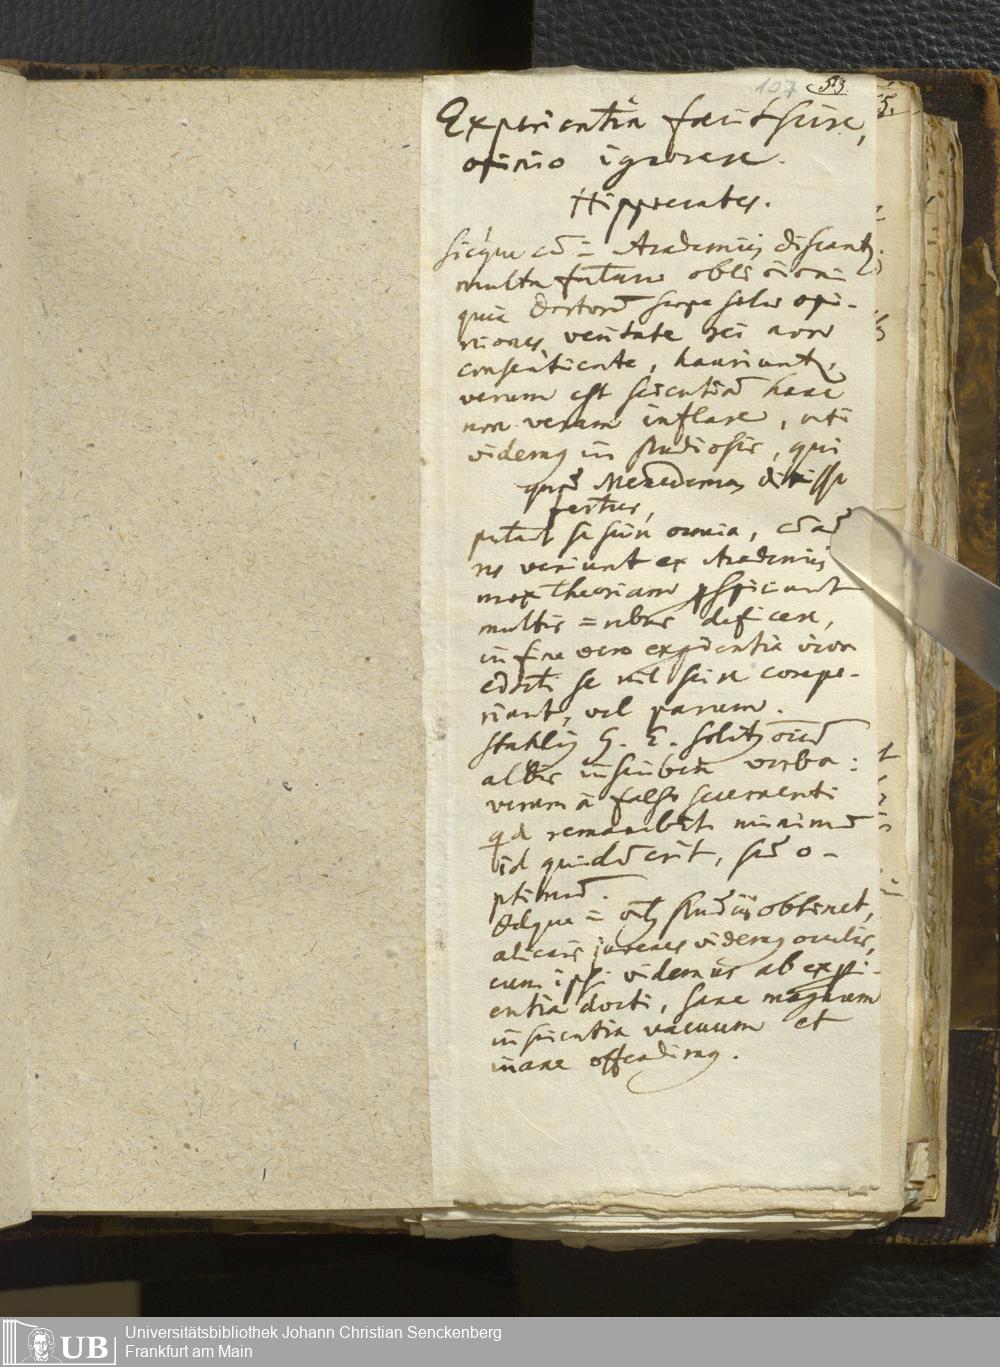 107 53.
Experientia facit scire,
opinio ignorare.
Hippocrates.
sicque cũ = Academiis discant
multa futura
quia Doctorũ saepe solas opi-
niones, veritate rei non
consentiente, hauriunt,
verum est scientiã hanc
non veram inflare, uti
videmus in studiosis, qui
Menedemus
putant se scire omnia,
veniunt ex Academiis
mox theoriam
multis = rebus deficere,
in fine vero experientia viva
edocti se nil scire compe-
riant, vel parum.
Stahlius G. E.
albis inscribere verba:
verum a falso
qd remanebit minimũ
id quidẽ erit, sed o-
ptimũ.
Idque = obtinet,
alienis juvenes videmus oculis,
cum ipsi videmus ab experi-
entia docti, sane magnum
inscientia vacuum et
inane offendimus.
UB
Universitätsbibliothek Johann Christian Senckenberg
Frankfurt am Main